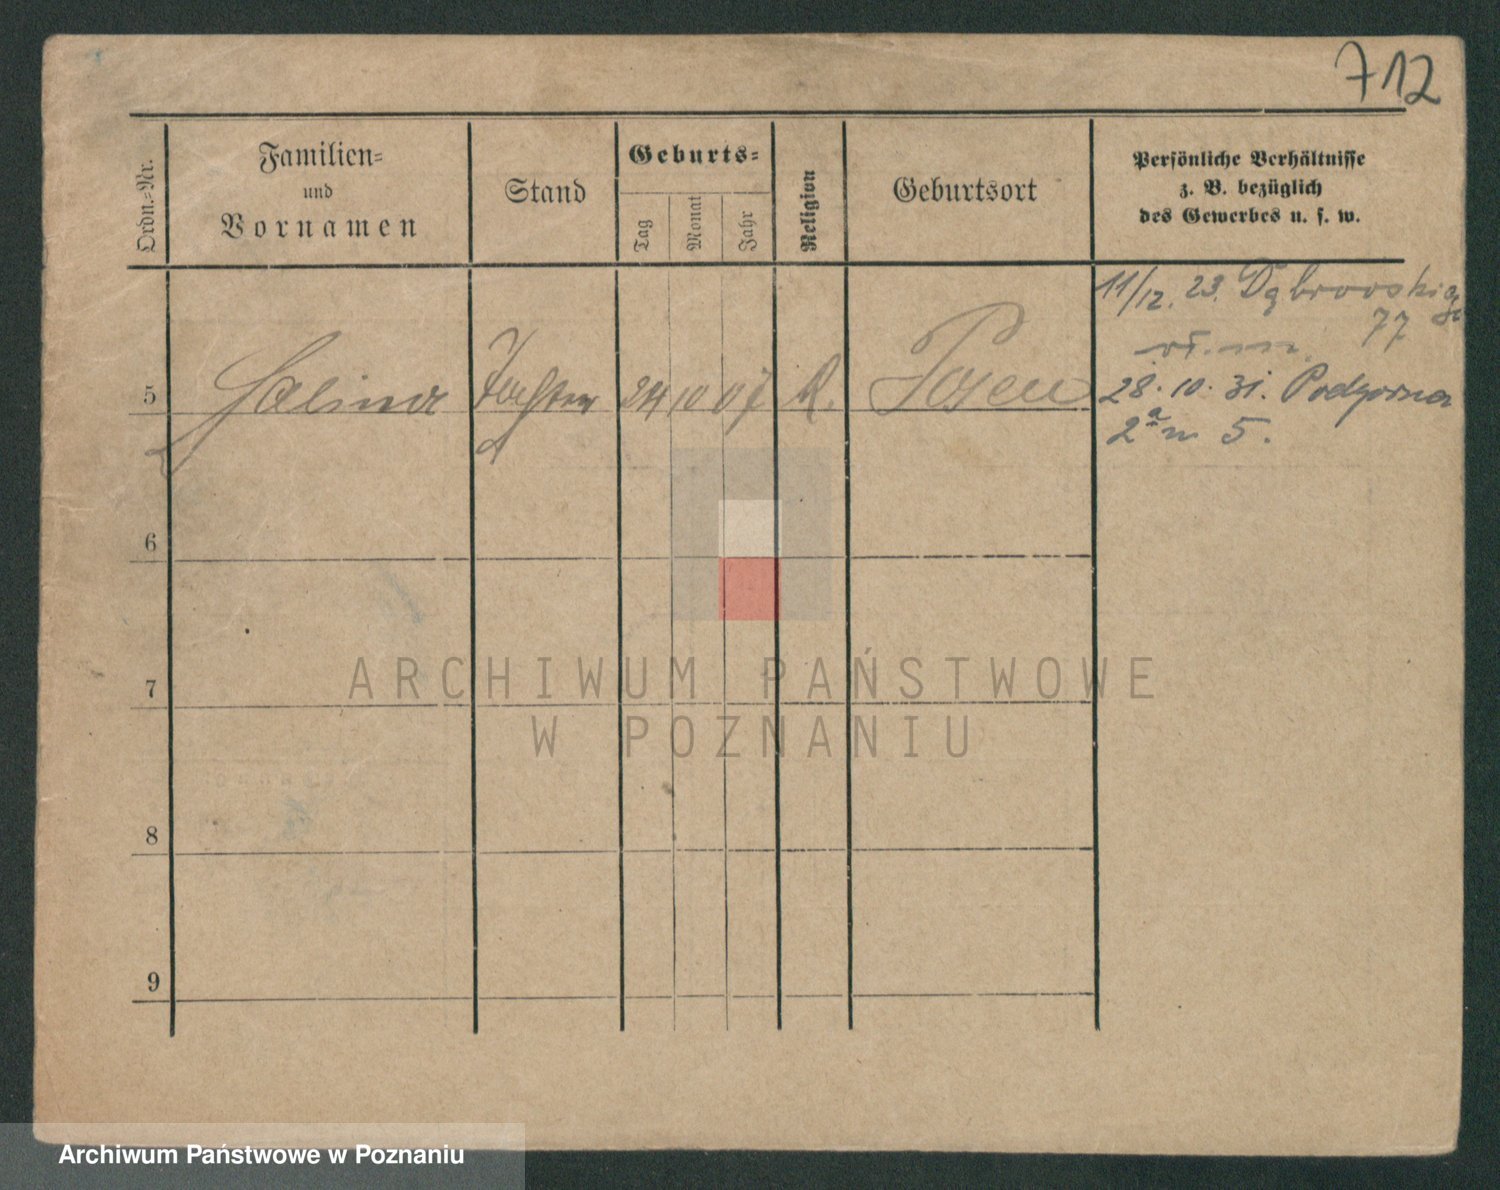 712
Ordn.-Nr.
Familien-
und
Vornamen
Stand
Geburts-
Tag
Monat
Jahr
Religion
Geburtsort
Persönliche Verhältnisse
z. B. bezüglich
des Gewerbes u. s. w.
11/12. 23. Dąbrowskiego
77
5 Halina Tochter 24 10 07 K. Posen
28. 10. 31. Podgórna
2a m 5.
6
7
8
9
ARCHIWUM PAŃSTWOWE
W POZNANIU
Archiwum Państwowe w Poznaniu